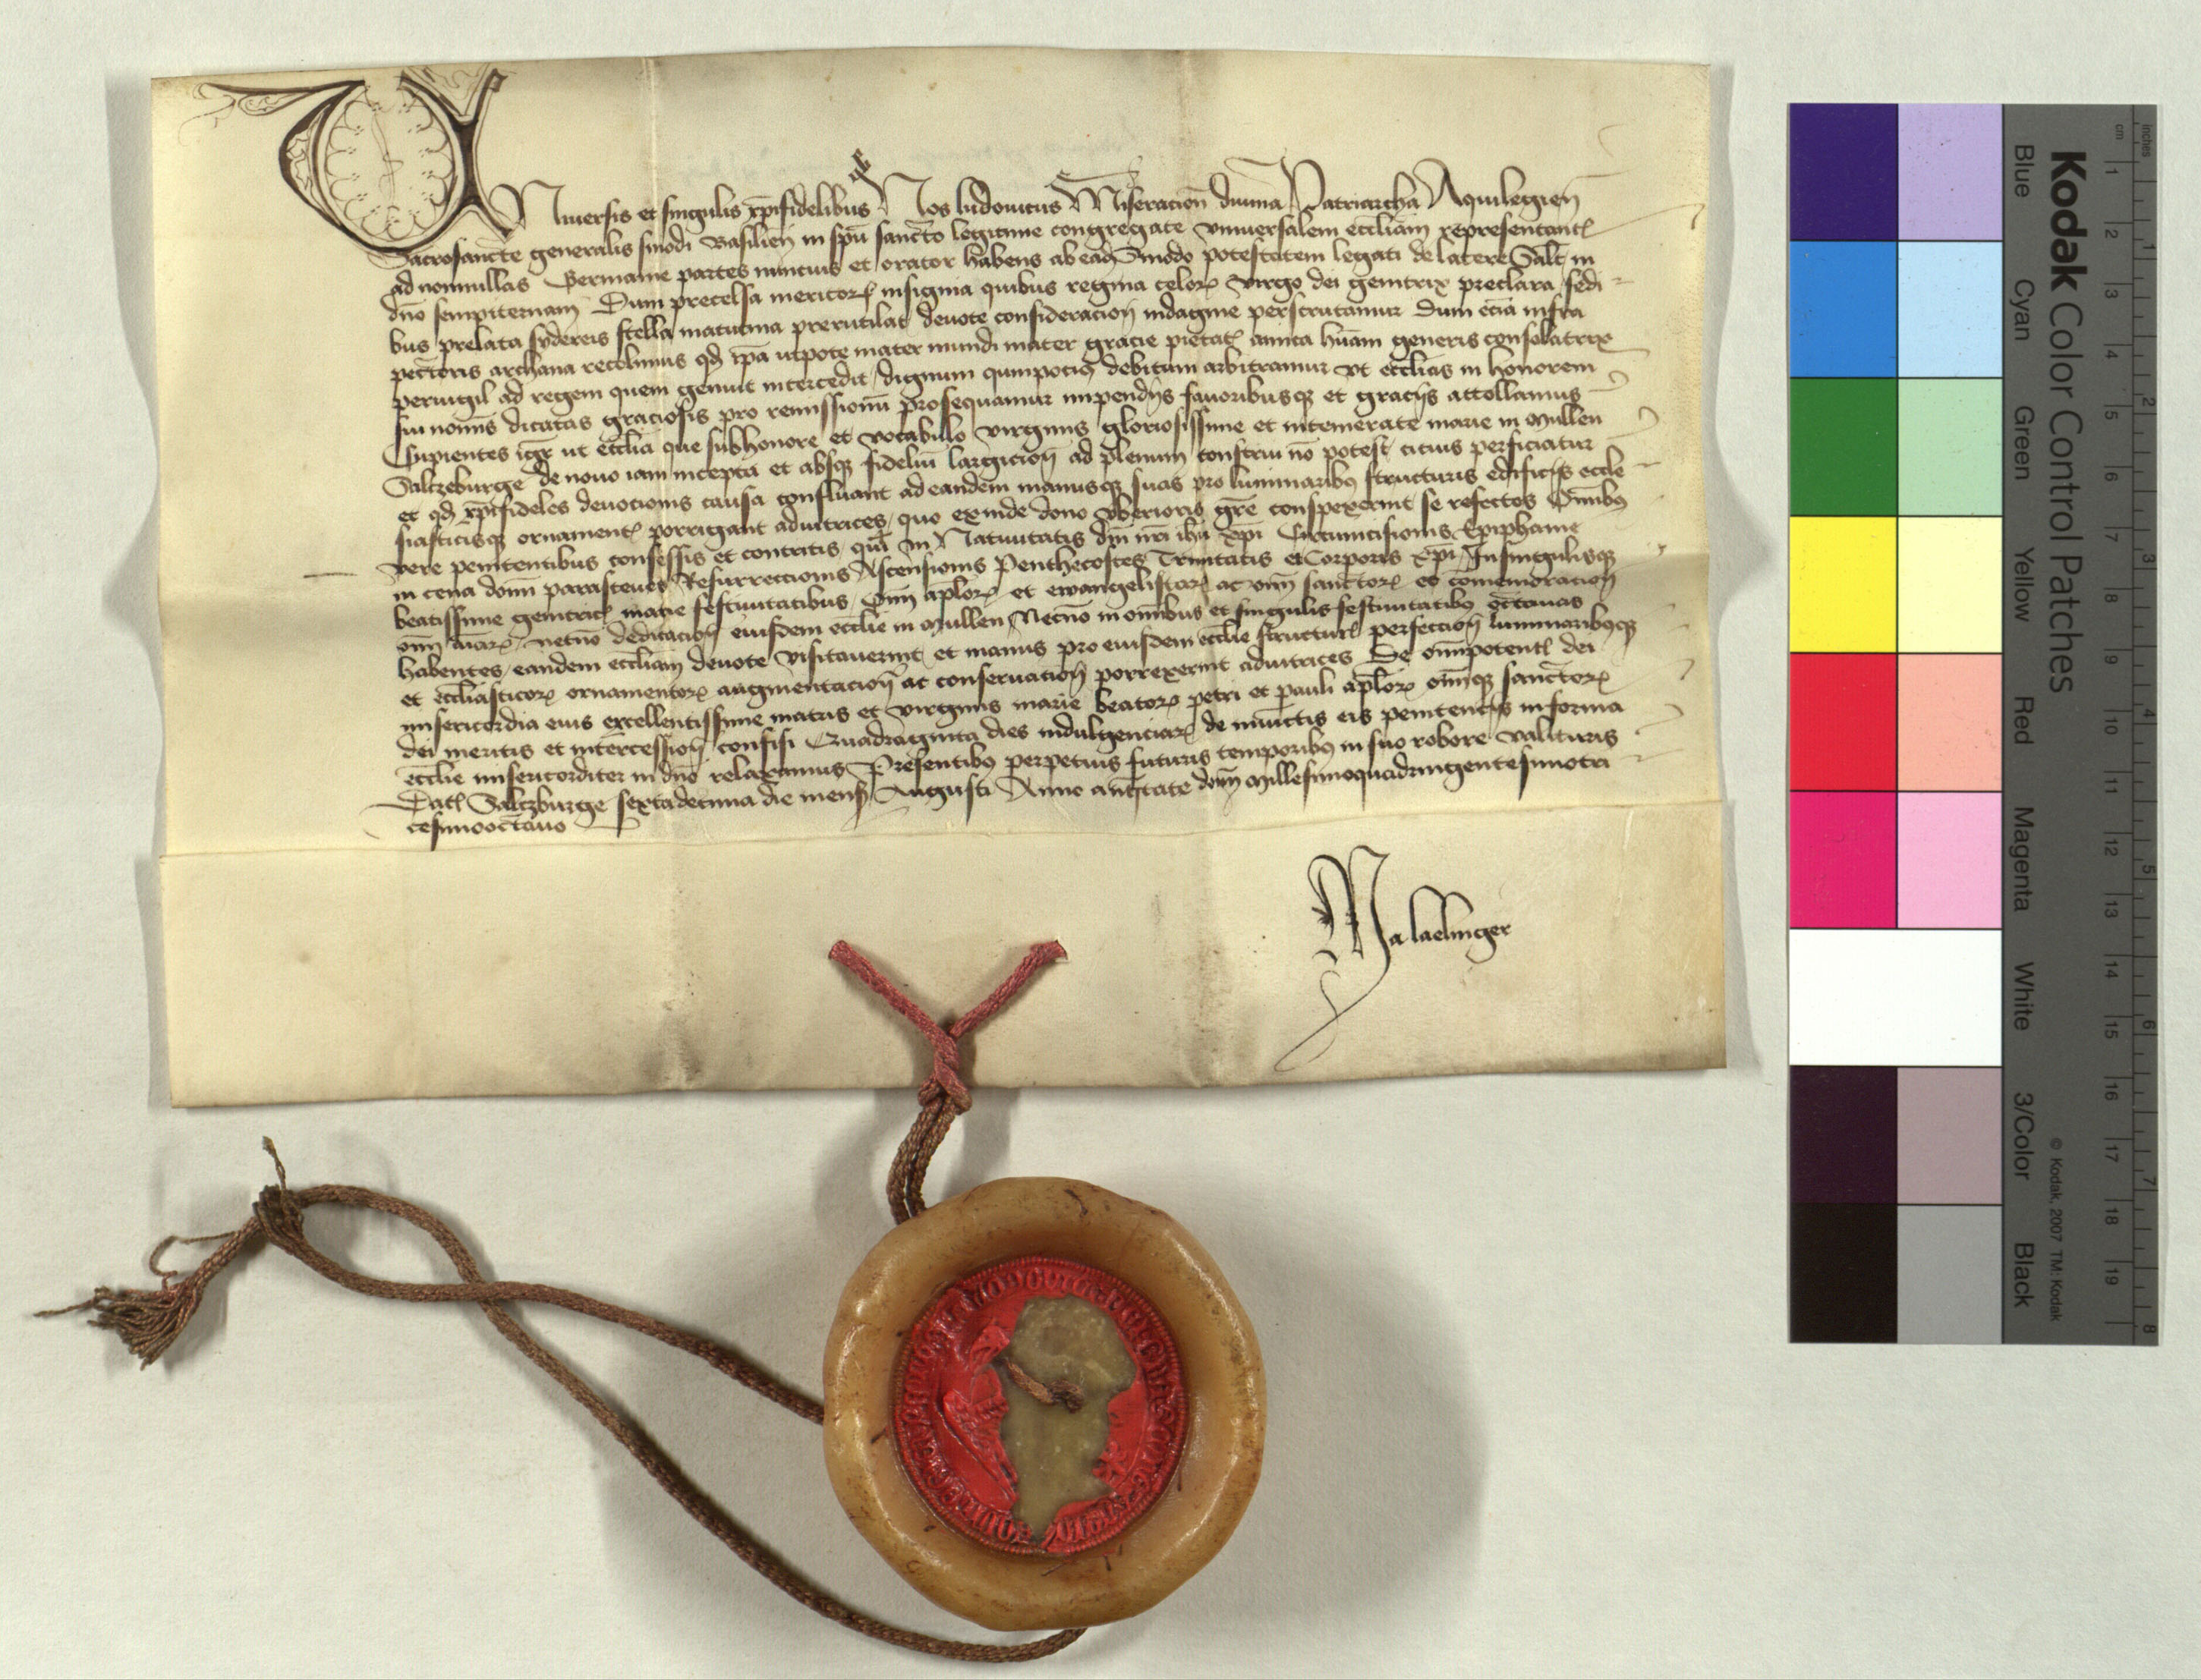 Universis et singulis xp̄ifidelibus Nos ludouicus Miseracion̄ diuina Patriarcha Aquilegien̄
Sacrosancte generalis sinodi Basilien̄ in sp̄u sancto legittime congregate vniuersalem eccl̄iam representantꝭ
ad nonnullas Germanie partes nuncius et orator habens ab ead̄ Sinodo potestatem legati de latere Salt̄ in
dn̄o sempiternam Dum precelsa meritorꝝ insignia quibus regina celorꝝ virgo dei genitrix preclara sedi
bus prelata sydereis stella matutina prerutilat deuote consideracion̄ indagine perscrutamur Dum ecia infra
pectoris archana recolimus qd̄ ip̄a utpote mater mundi mater gracie pietatꝭ amica hūam generis consolatrix
peruigil ad regem quem genuit intercedit dignum quinpociꝰ debitum arbitramur vt ecclīas in honorem
sui nomīs dicatas graciosis pro remissionū prosequamur inpendijs fauoribusqꝫ et gracijs attollamus
Cupientes igr̄ ut eccl̄ia que sub honore et vocabulo virginis gloriosissime et intemerate marie in Mullen
Saltzeburge de nouo iam incepta et absqꝫ fideliū largicion̄ ad plenum construi nō potest citius perficiatur
et qd̄ xp̄ifideles deuocionis causa confluant ad eandem manusqꝫ suas pro luminaribꝰ structuris edificijs eccle
siasticisqꝫ ornamentꝭ porrigant adiutrices, quo exinde dono vberioris gr̄e conspexerint se refectos Om̄ibꝰ
vere penitentibus confessis et contritis qui in Natiuitatis dn̄i nr̄i ih̄u xp̄i Circumcisionis Epiphanie
in cena domi parasceues Resurrectionis Ascensionis Penthecostes Trinitatis et Corporis xp̄i, In singulisqꝫ
beatissime genitricꝭ marie festiuitatibus, Om̄ ap̄lorꝝ et ewangelistarꝝ ac om̄ sanctorꝝ et comemoracion̄
om̄ aīarꝝ, necnō dedicacion̄ eiusdem eccl̄ie in Mullen, Necnō in omībus et singulis festiuitatibꝰ octauas
habentes, eandem eccl̄iam deuote visitauerint, et manus pro eiusdem eccl̄ie structurꝭ perfeccion̄ luminaribꝰqꝫ
et eccl̄iasticorꝝ ornamentorꝝ augmentacion̄ ac conseruacion̄ porrexerint adiutrices De om̄ipotentꝭ dei
misericordia eius excellentissime matris et virginis marie beatorꝝ petri et pauli ap̄lorꝝ om̄iqꝫ sanctorꝝ
dei meritis et intercession̄ confisi Quadraginta dies indulgenciarꝝ de iniunctis eis penitencijs in forma
eccl̄ie misericorditer in dn̄o relaxamus Presentibꝰ perpetuis futuris temporibꝰ in suo robore valituris
Datꝭ Saltzburge sextadecima die mens̄ Augusti Anno a natītate domī Millesimoquadringentesimotri
cesimooctauo
Ma laelinger
Kodak Color Control Patches
Blue Cyan Green Yellow Red Magenta White 3/Color Black
© Kodak, 2007 TM: Kodak
inches 1 2 3 4 5 6 7 8
cm 1 2 3 4 5 6 7 8 9 10 11 12 13 14 15 16 17 18 19